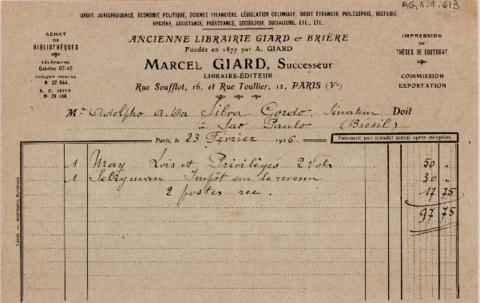 AG.1.1.613
DROIT, JURISPRUDENCE, ÉCONOMIE POLITIQUE, SCIENCE FINANCIÈRE, LÉGISLATION COLONIALE, DROIT ÉTRANGER, PHILOSOPHIE, HISTOIRE
HYGIÈNE, ASSISTANCE, PRÉVOYANCE, SOCIOLOGIE, SOCIALISME, ETC., ETC.
ACHAT
DE
BIBLIOTHÈQUES
TÉLÉPHONE
CHÈQUE POSTAL
N° 27.544
R. C. SEINE
N° 25.105
ANCIENNE LIBRAIRIE GIARD & BRIÈRE
Fondée en 1877 par A. GIARD
MARCEL GIARD, Successeur
LIBRAIRE-ÉDITEUR
Rue Soufflot, 16, et Rue Toullier, 12, PARIS (Ve)
IMPRESSION
DE
THÈSES DE DOCTORAT
COMMISSION
EXPORTATION
Mr Adolpho da Silva Gordo, Sénateur Doit
à Sao Paulo (Brésil)
Paris, le 23 Février 1926
Paiement par mandat postal après réception.
1 May Lois et Privilèges 2 Vols 50 "
1 Seligman Impôt sur le revenu 30 "
2 postes rec. 17 75
97 75